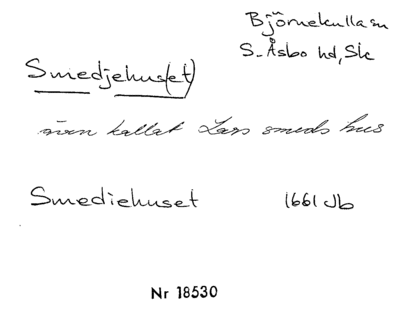 Björnekulla sn
S. Åsbo hd, Sk
Smedjehus(et)
även kallat Lars smeds hus
Smediehuset 1661 Jb
Nr 18530